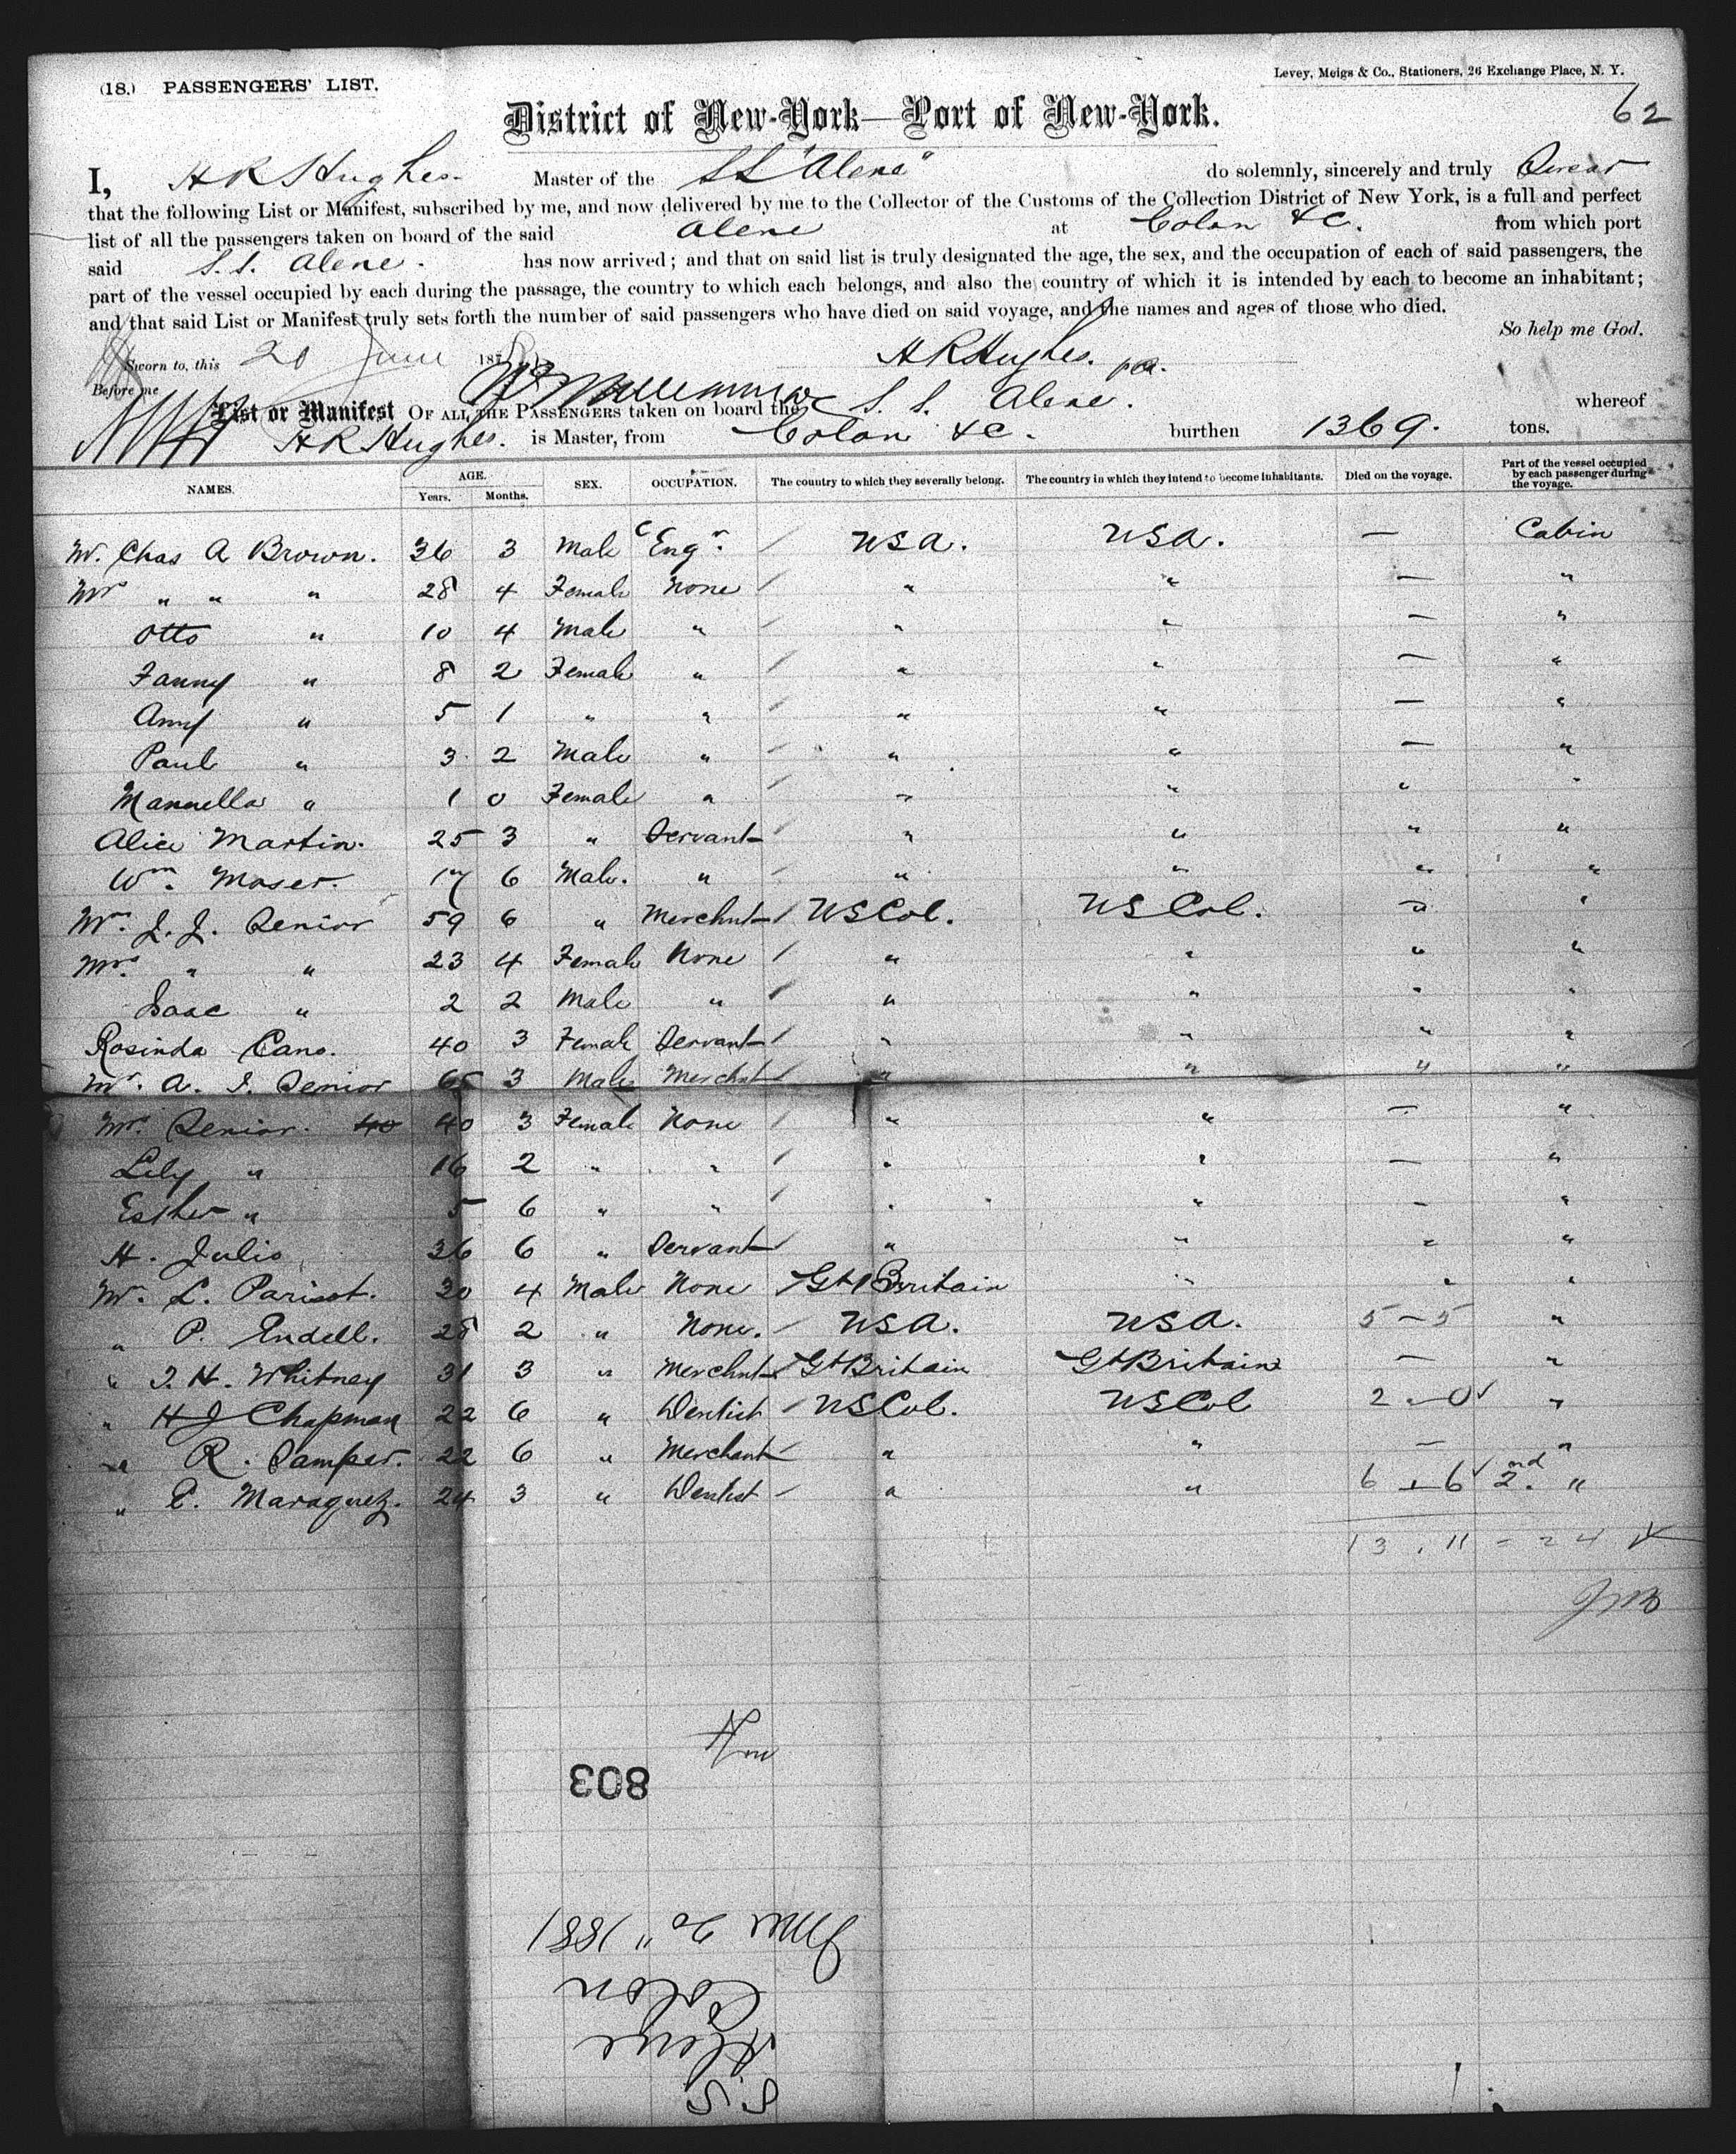 (18.) PASSENGERS' LIST.
Levey, Meigs & Co., Stationers, 26 Exchange Place, N. Y.
62
District of New-York—Port of New-York.
I, H R Hughes. Master of the SS "Alene" do solemnly, sincerely and truly Swear
that the following List or Manifest, subscribed by me, and now delivered by me to the Collector of the Customs of the Collection District of New York, is a full and perfect
list of all the passengers taken on board of the said Alene at Colon &c. from which port
said S. S. Alene. has now arrived; and that on said list is truly designated the age, the sex, and the occupation of each of said passengers, the
part of the vessel occupied by each during the passage, the country to which each belongs, and also the country of which it is intended by each to become an inhabitant;
and that said List or Manifest truly sets forth the number of said passengers who have died on said voyage, and the names and ages of those who died.
So help me God.
Sworn to, this 20 June 18 H R Hughes.
Before me
List or Manifest OF ALL THE PASSENGERS taken on board the S. S. Alene. whereof
H R Hughes. is Master, from Colon &c. burthen 1369. tons.
NAMES. AGE. Years. Months. SEX. OCCUPATION. The country to which they severally belong. The country in which they intend to become inhabitants. Died on the voyage. Part of the vessel occupied by each passenger during the voyage.
Mr. Chas A Brown. 36 3 Male C Engr. / USA. USA. — Cabin
Mrs " " " 28 4 Female None / " " — "
Otto " 10 4 Male " / " " — "
Fanny " 8 2 Female " / " " — "
Amy " 5 1 " " / " " — "
Paul " 3 2 Male " / " " — "
Mannella " 1 0 Female " / " " " "
Alice Martin. 25 3 " Servant / " " " "
Wm. Moser. 17 6 Male. " / " " " "
Mr. J. J. Senior 59 6 " Merchnt / US Col. US Col. " "
Mrs. " " 23 4 Female None / " " " "
Isaac " 2 2 Male " / " " " "
Rosinda Cano. 40 3 Female Servant / " " " "
Mr. A. I. Senior 65 3 Male Merchnt / " " " "
Mrs. Senior. 40 40 3 Female None / " " — "
Lily " 16 2 " " / " " — "
Esther " 5 6 " " / " " — "
H. Julio 36 6 " Servant / " " " "
Mr. L. Parisot. 30 4 Male None / Gt Britain " " "
" P. Endell. 28 2 " None. / USA. USA. 5 - 5 "
" J. H. Whitney 31 3 " Merchnt / Gt Britain Gt Britain — "
" H J Chapman 22 6 " Dentist / US Col. US Col 2 - 0 ✓ "
" R. Samper. 22 6 " Merchant / " " — "
" E. Maraguez. 24 3 " Dentist / " " 6 + 6 ✓ 2nd. "
13 . 11 = 24
JMB
803
S.S
Alene
Colon
June 20" 1881